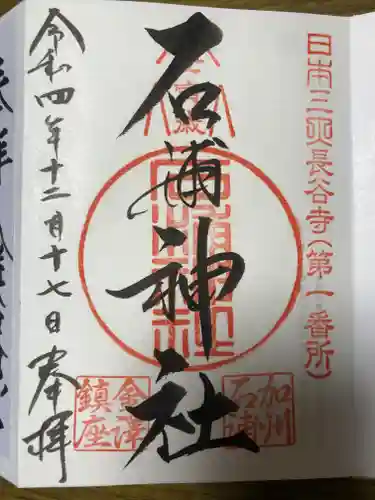 日本三所長谷寺(第一番所)
石浦神社
加州
石浦
金澤
鎮座
令和四年十二月十七日 奉拝